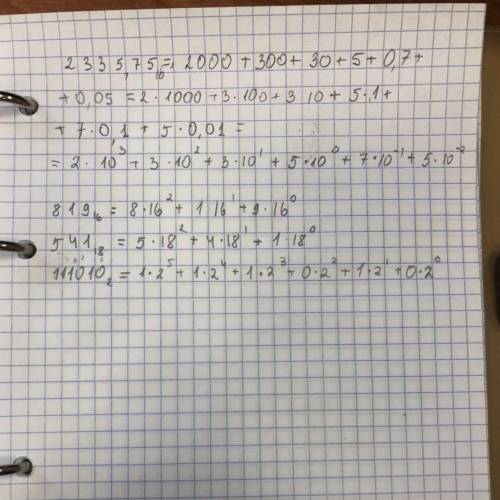 2335,75₁₀ = 2000 + 300 + 30 + 5 + 0,7 +
+ 0,05 = 2 · 1000 + 3 · 100 + 3 10 + 5 · 1 +
+ 7 · 0 1 + 5 · 0,01 =
= 2 · 10³ + 3 · 10² + 3 · 10¹ + 5 · 10⁰ + 7 · 10⁻¹ + 5 · 10⁻²
819₁₆ = 8 · 16² + 1 16¹ + 9 · 16⁰
541₁₈ = 5 · 18² + 4 · 18¹ + 1 · 18⁰
111010₂ = 1 · 2⁵ + 1 · 2⁴ + 1 · 2³ + 0 · 2² + 1 · 2¹ + 0 · 2⁰